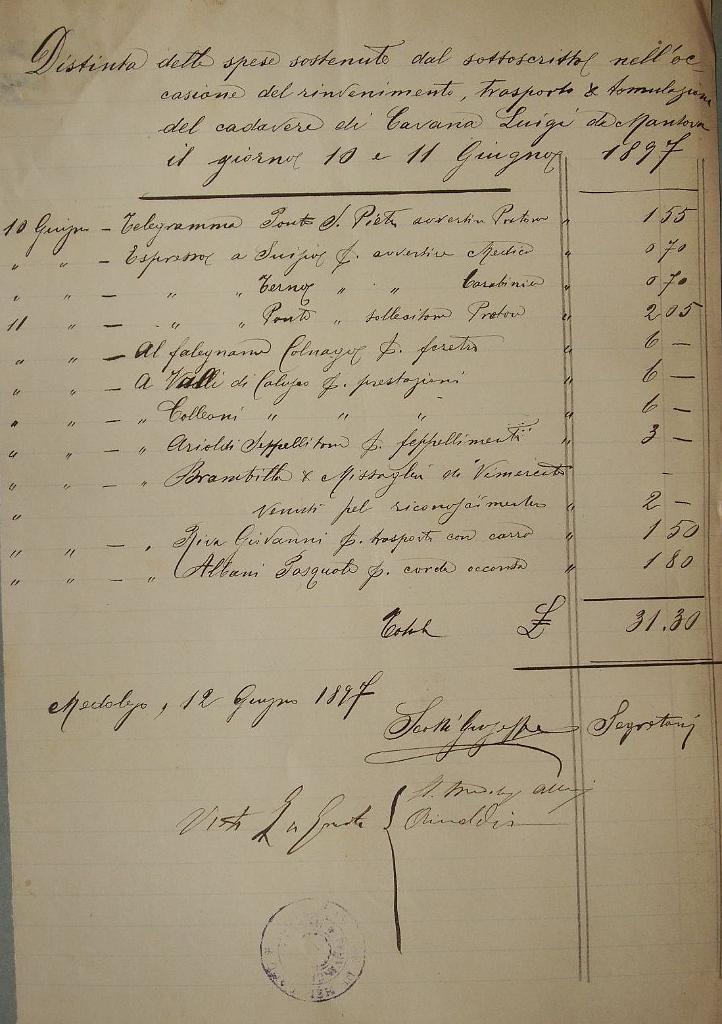 Distinta delle spese sostenute dal sottoscritto nell'oc-
casione del rinvenimento, trasporto & tomulazione
del cadavere di Cavana Luigi di Mantova
il giorno 10 e 11 Giugno 1897
10 Giugno — Telegramma Ponte S. Pietro avvertire Pretore " 1 55
" " — Espresso a Suisio p. avvertire Medico " 0 70
" " — " " Terno " " Carabinieri " 0 70
11 " — " " Ponte " sollecitare Pretore " 2 05
" " — Al falegname Colnago p. feretro " 6 —
" " — A Valli di Calusco p. prestazioni " 6 —
" " — " Colleoni " " " " 6 —
" " — " Arioldi Seppellitore p. seppellimento " 3 —
" " — " Brambilla & Missaglia di Vimercate —
" venuti pel riconoscimento " 2 —
" " — " Riva Giovanni p. trasporto con carro " 1 50
" " — " Albani Pasquale p. corda occorsa " 1 80
Totale £ 31.30
Medolago, 12 Giugno 1897
Scotti Giuseppe Segretario
Visto La Giunta